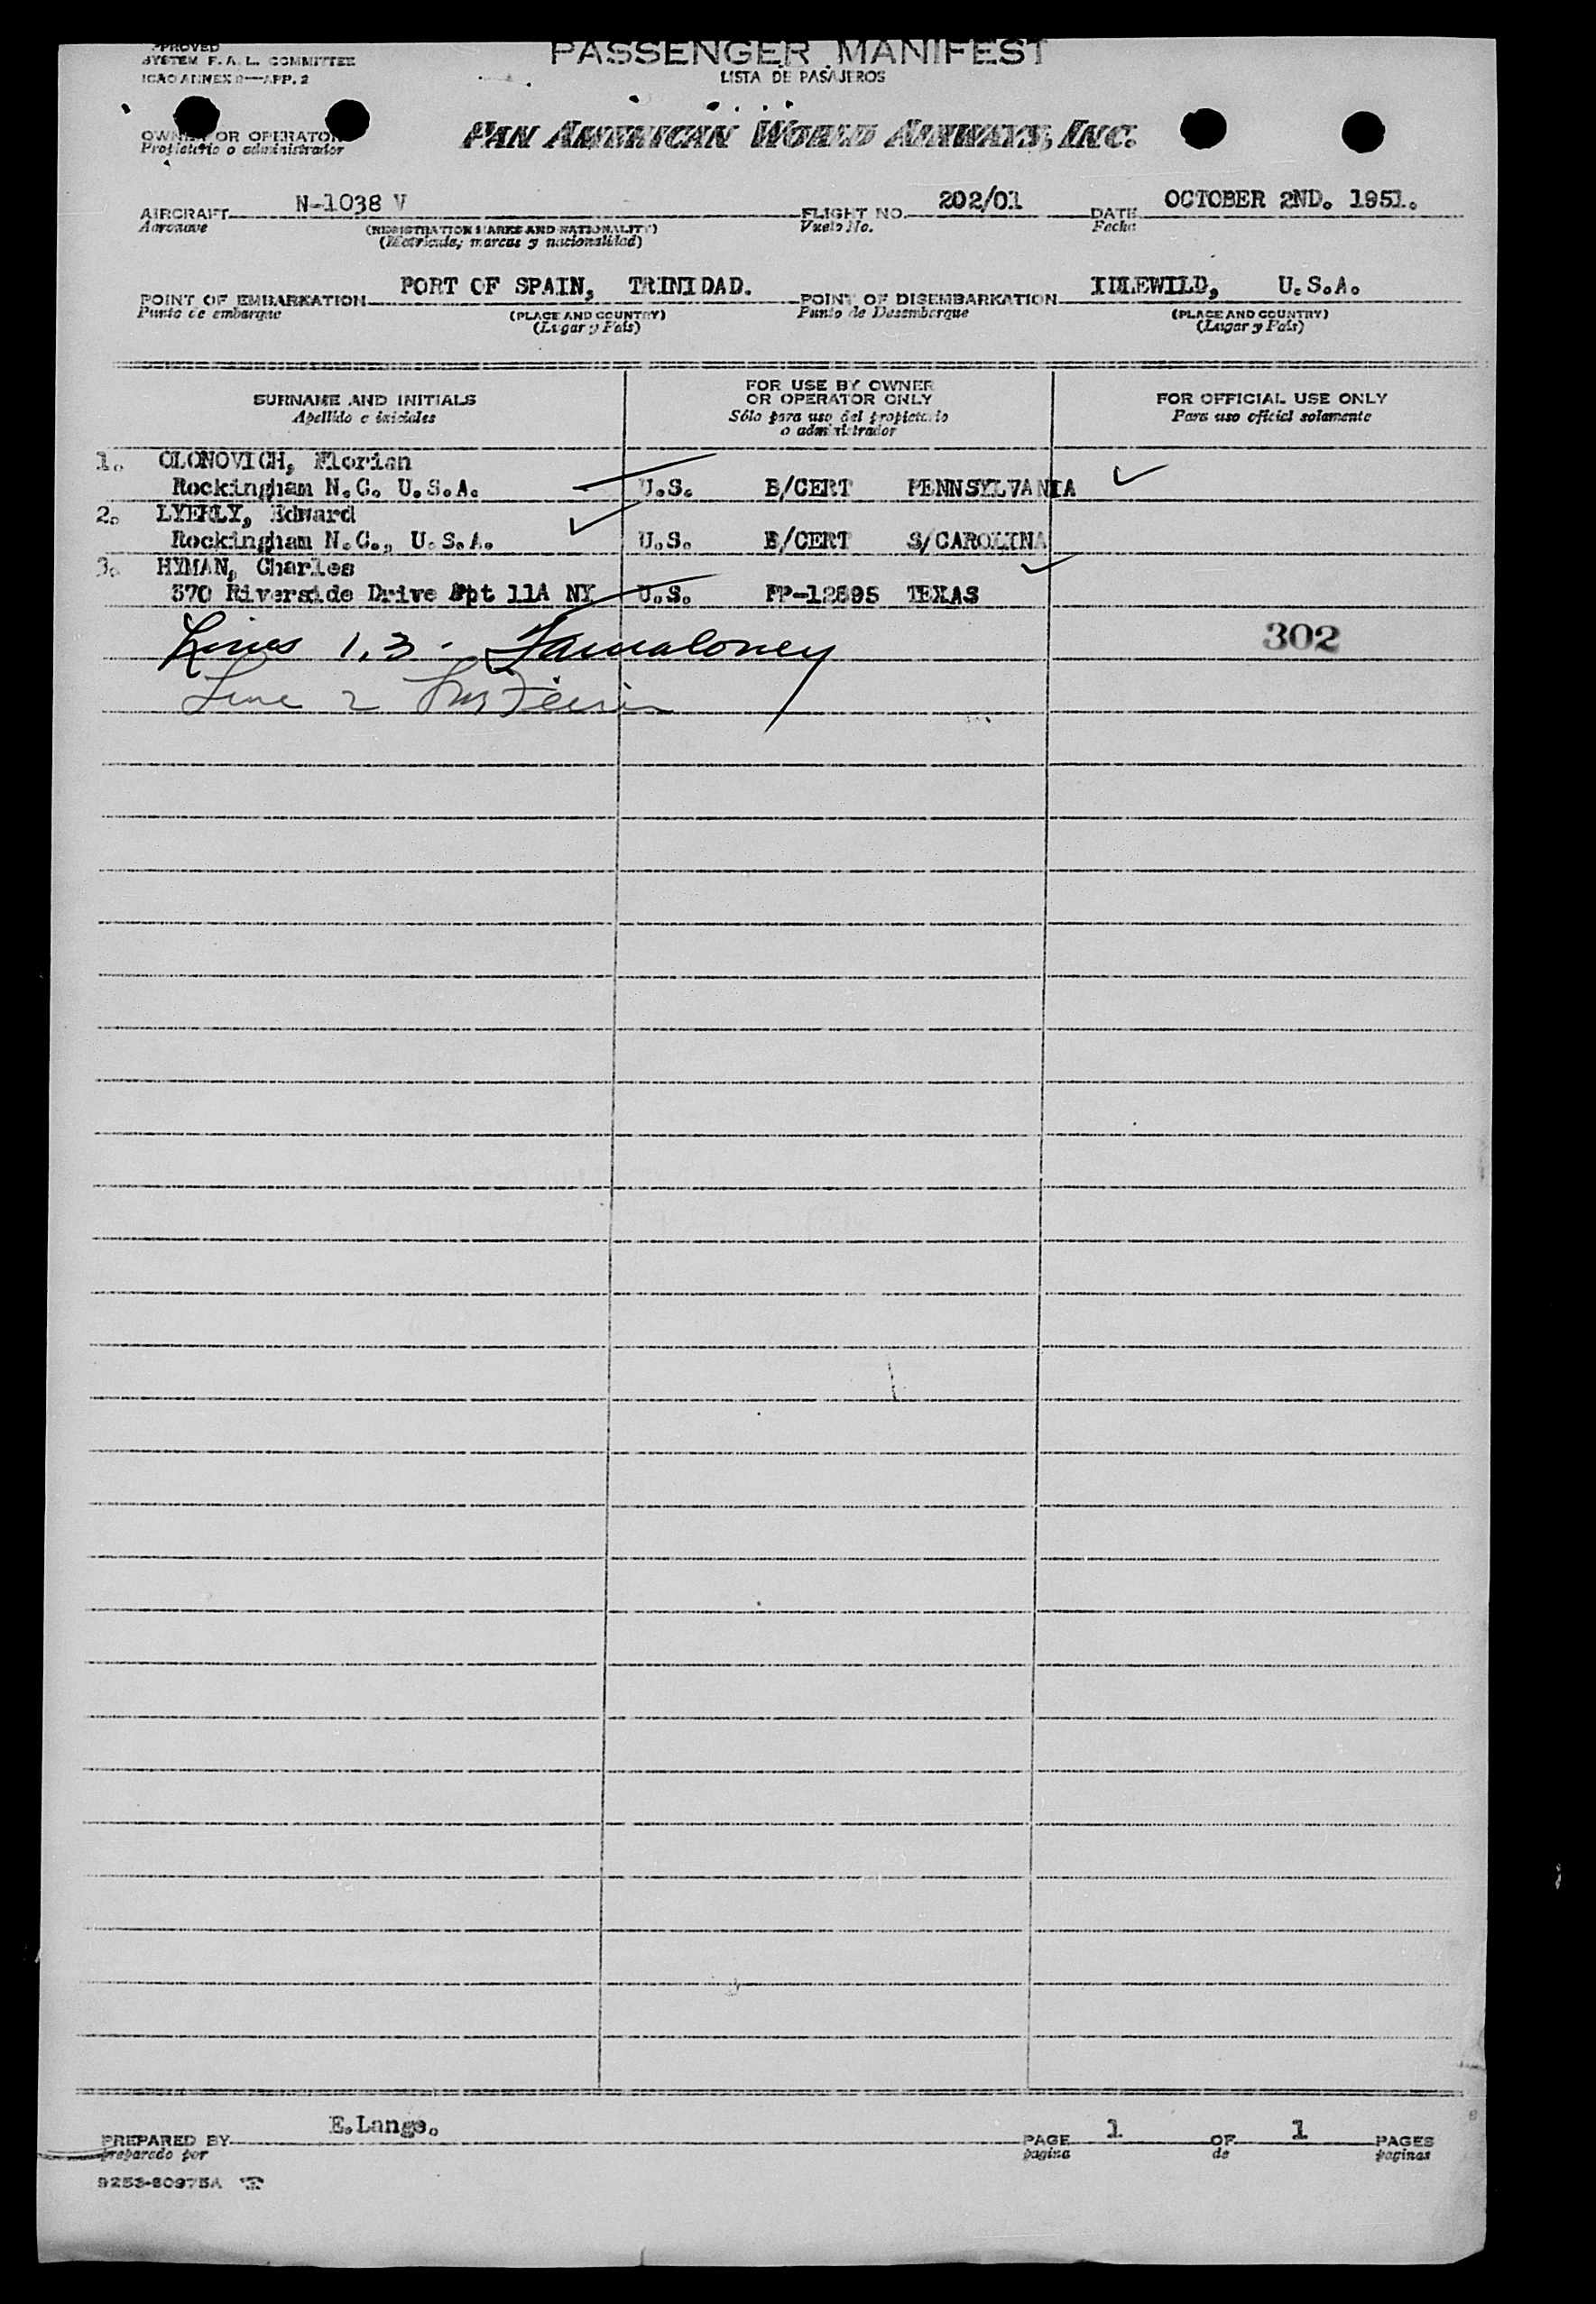 APPROVED
SYSTEM F. A. L. COMMITTEE
ICAO ANNEX 9—APP. 2
PASSENGER MANIFEST
LISTA DE PASAJEROS
OWNER OR OPERATOR
Propietario o administrador
PAN AMERICAN WORLD AIRWAYS, INC.
AIRCRAFT N-1038 V FLIGHT NO. 202/01 DATE OCTOBER 2ND. 1951.
Aeronave (REGISTRATION MARKS AND NATIONALITY) Vuelo No. Fecha
(Matricula, marcas y nacionalidad)
POINT OF EMBARKATION PORT OF SPAIN, TRINIDAD. POINT OF DISEMBARKATION IDLEWILD, U.S.A.
Punto de embarque (PLACE AND COUNTRY) Punto de Desembarque (PLACE AND COUNTRY)
(Lugar y País) (Lugar y País)
SURNAME AND INITIALS
Apellido e iniciales
FOR USE BY OWNER
OR OPERATOR ONLY
Sólo para uso del propietario
o administrador
FOR OFFICIAL USE ONLY
Para uso oficial solamente
1. OLONOVICH, Florian
Rockingham N.C. U.S.A. U.S. B/CERT PENNSYLVANIA
2. LYERLY, Edward
Rockingham N.C., U.S.A. U.S. B/CERT S/CAROLINA
3. HYMAN, Charles
570 Riverside Drive Apt 11A NY U.S. PP-12895 TEXAS
Lines 1,3 -
302
Line 2
PREPARED BY E.Lange. PAGE 1 OF 1 PAGES
preparado por pagina de paginas
9253-80975A